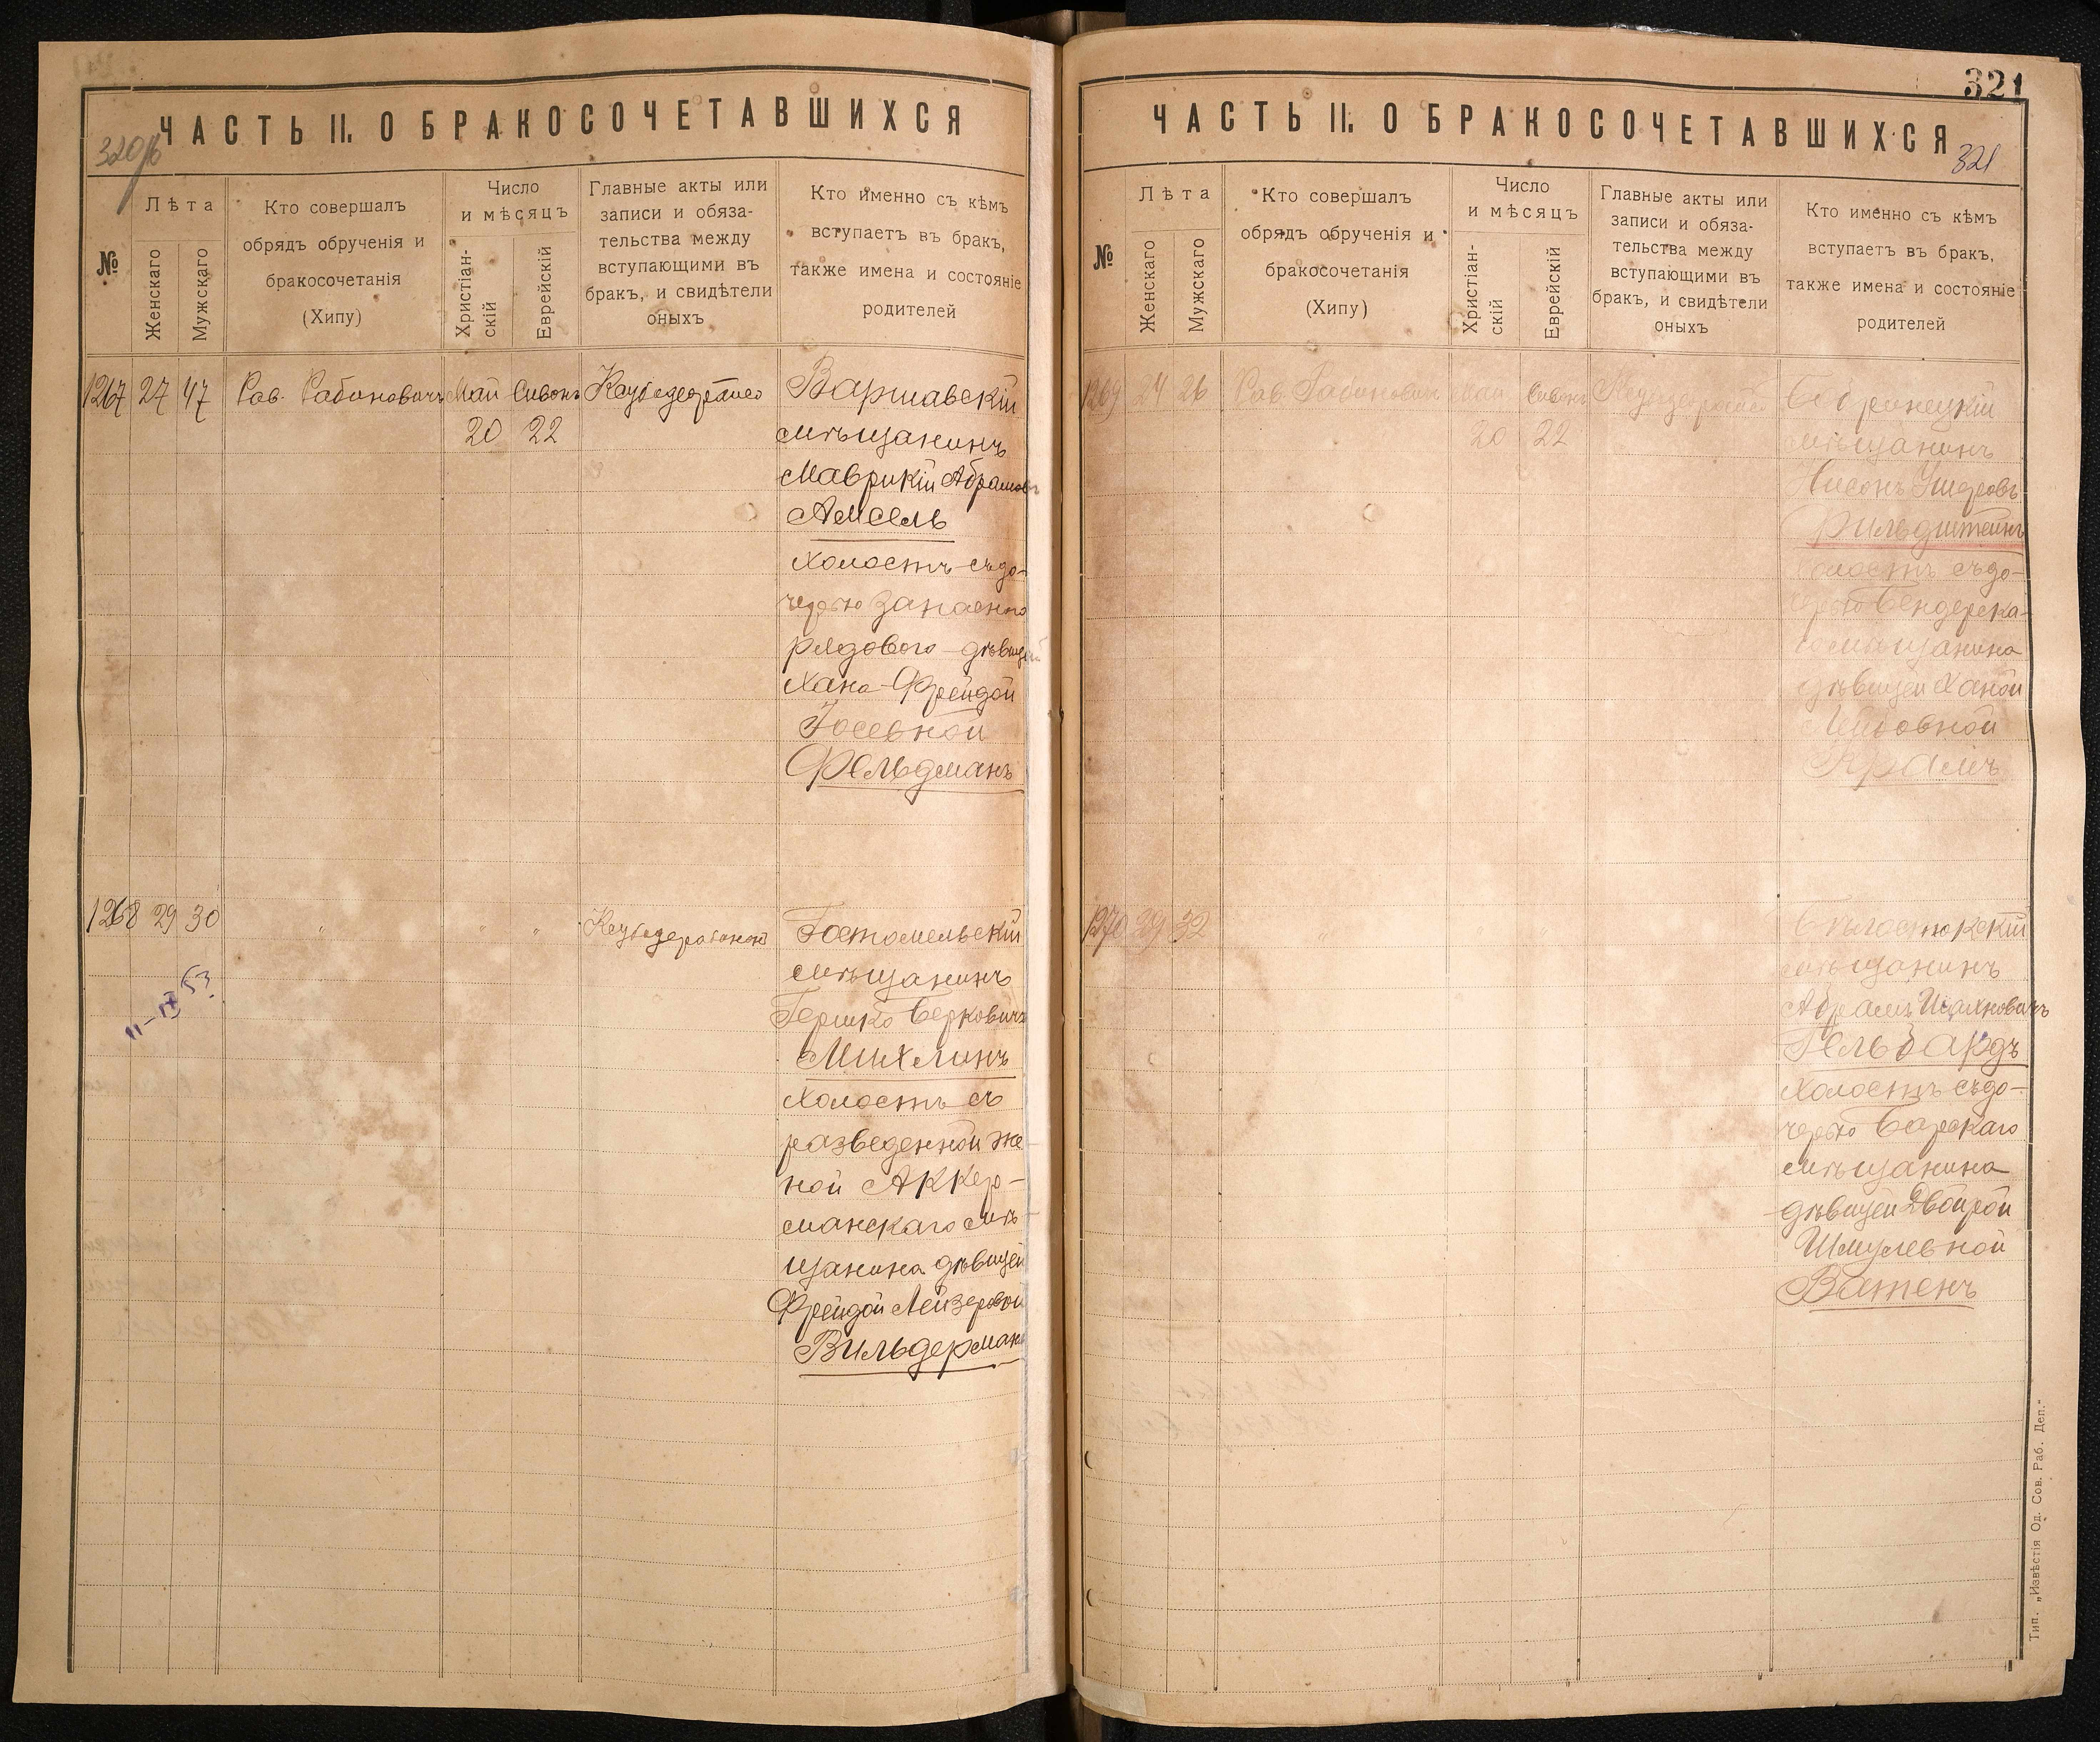 ЧАСТЬ II. О БРАКОСОЧЕТАВШИХСЯ
320об
№
Лѣта
Женскаго
Мужскаго
Кто совершалъ
обрядъ обрученія и
бракосочетанія
(Хипу)
Число
и мѣсяцъ
Христіан-
скій
Еврейскій
Главные акты или
записи и обяза-
тельства между
вступающими въ
бракъ, и свидѣтели
оныхъ
Кто именно съ кѣмъ
вступаетъ въ бракъ,
также имена и состояніе
родителей
1267 27 47 Рав. Рабиновичъ Май Сивонъ
20 22
Варшавскій
мѣщанинъ
Маврикій Абрамов
Амсель
холостъ съ до-
черью запасного
рядового дѣвицей
Хана-Фрейдой
Іосевной
Фельдманъ
1268 29 30 " " "
11-IX 53
Гостомельскій
мѣщанинъ
Гершко Берковичъ
Михлинъ
холостъ съ
разведенной же
ной Аккер-
манскаго мѣ-
щанина дѣвицей
Фрейдой Лейзеровой
Вильдерманъ
ЧАСТЬ II. О БРАКОСОЧЕТАВШИХСЯ
321
321
№
Лѣта
Женскаго
Мужскаго
Кто совершалъ
обрядъ обрученія и
бракосочетанія
(Хипу)
Число
и мѣсяцъ
Христіан-
скій
Еврейскій
Главные акты или
записи и обяза-
тельства между
вступающими въ
бракъ, и свидѣтели
оныхъ
Кто именно съ кѣмъ
вступаетъ въ бракъ,
также имена и состояніе
родителей
1269 24 26 Рав. Рабиновичъ Май Сивонъ
20 22
мѣщанинъ
Нисонъ Ушеровъ
холостъ съ до-
черью Бендерска-
го мѣщанина
дѣвицей Ханой
Крамъ
1270 29 32 " " "
Бѣлостокскій
мѣщанинъ
Абрамъ
Гельбардъ
холостъ съ до-
черью Барскаго
мѣщанина
дѣвицей Двойрой
Шмулевной
Ватенъ
Тип. „Извѣстія Од. Сов. Раб. Деп."